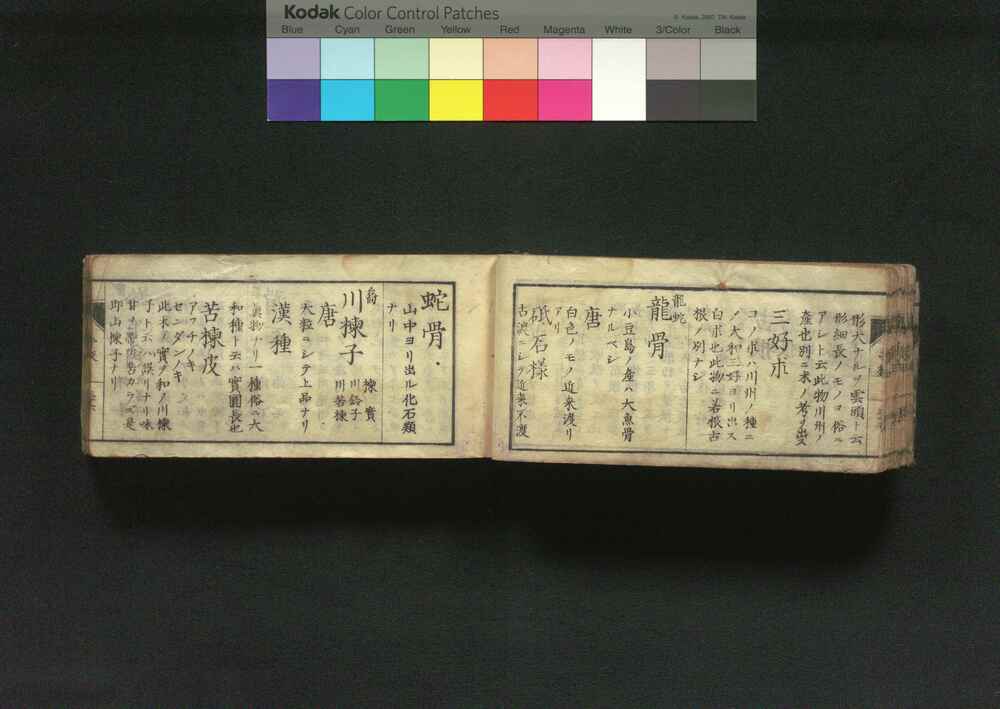 Kodak Color Control Patches
© Kodak, 2007 TM: Kodak
Blue Cyan Green Yellow Red Magenta White 3/Color Black
形大ナルヲ雲頭ト云
形細長ノモノヲ俗ニ
アシト云此物川州ノ
産也別ニ朮ノ考ヲ出ス
三好朮
コノ朮ハ川州ノ種ニ
ノ大和三好ヨリ出ス
白朮也此物ニ若根古
根ノ別ナシ
龍蛇
龍骨
小豆島ノ産ハ大魚骨
ナルベシ
唐
白色ノモノ近来渡リ
アリ
砥石樣
古渡ニシテ近来不渡
蛇骨
山中ヨリ出ル化石類
ナリ
川楝子
楝實
川鈴子
川苦楝
唐
大粒ニシテ上品ナリ
漢種
眞物ナリ一種俗ニ大
和種ト云ハ實圓長也
苦楝皮
アフチノキ
センダンノキ
此木ノ實ヲ和ノ川楝
子ト云ハ誤リナリ味
甘ニ
是
即山楝子ナリ